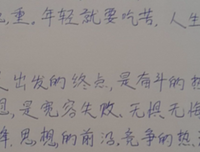 重。年轻就要吃苦。人生
出发的终点,是奋斗的
是宽容失败、无惧无悔
思想的前沿,竞争的热